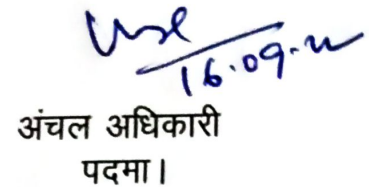 16.09.22
अंचल अधिकारी
पदमा।